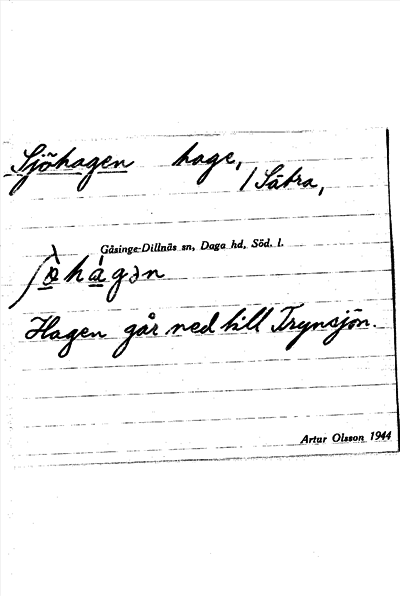 Sjöhagen hage,
/ Sätra,
Gåsinge-Dillnäs sn, Daga hd, Söd. l.
Hagen går ned till Trynsjön.
Artur Olsson 1944